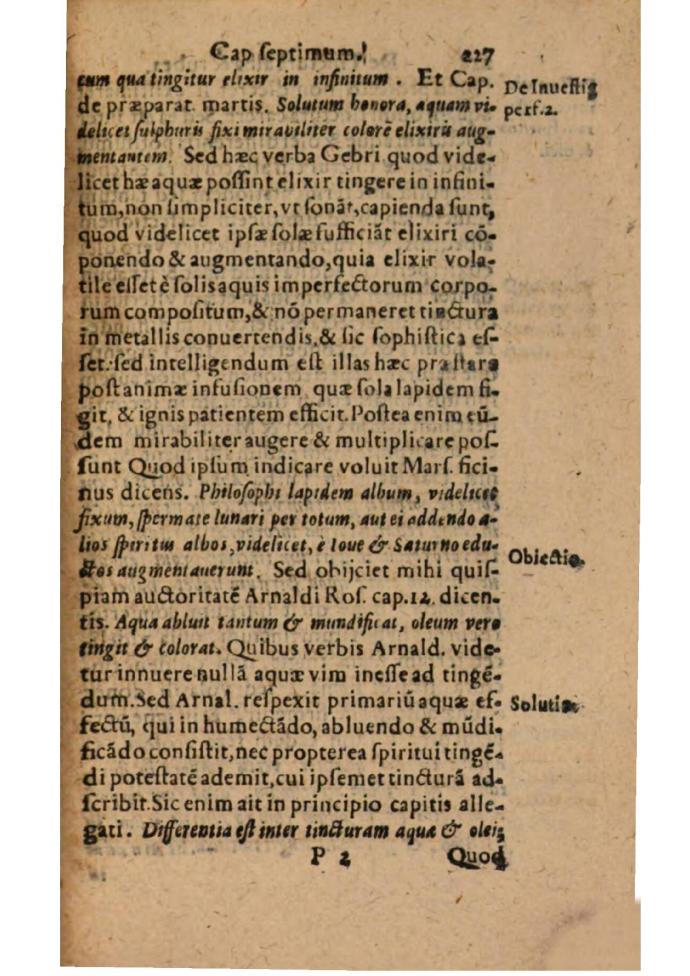 Cap septimum.
227
cum qua tingitur elixir in infinitum. Et Cap.
De Inuestig
de præparat. martis. Solutum honora, aquam vi-
perf. 2.
delicet sulphuris fixi mirabiliter colorē elixiris aug-
mentantem. Sed hæc verba Gebri quod vide-
licet hæ aquæ possint elixir tingere in infini-
tum, non simpliciter, vt sonāt, capienda sunt,
quod videlicet ipsæ solæ sufficiāt elixiri cō-
ponendo & augmentando, quia elixir vola-
tile esset è solis aquis imperfectorum corpo-
rum compositum, & nō permaneret tinctura
in metallis conuertendis, & sic sophistica es-
set: sed intelligendum est illas hæc præstare
post animæ infusionem quæ sola lapidem fi-
git, & ignis patientem efficit. Postea enim eū-
dem mirabiliter augere & multiplicare pos-
sunt Quod ipsum indicare voluit Mars. fici-
nus dicens. Philosophi lapidem album, videlicet
fixum, spermate lunari per totum, aut ei addendo a-
lios spiritus albos, videlicet, è Ioue & Saturno edu-
ctos augmentauerunt. Sed obijciet mihi quis-
Obiectio.
piam auctoritatē Arnaldi Ros. cap. 12. dicen-
tis. Aqua abluit tantum & mundificat, oleum vero
tingit & colorat. Quibus verbis Arnald. vide-
tur innuere nullā aquæ vim inesse ad tingē-
dum. Sed Arnal. respexit primariū aquæ ef-
Solutio.
fectū, qui in humectādo, abluendo & mūdi-
ficādo consistit, nec propterea spiritui tingē-
di potestatē ademit, cui ipsemet tincturā ad-
scribit. Sic enim ait in principio capitis alle-
gati. Differentia est inter tincturam aquæ & olei;
P 2
Quod